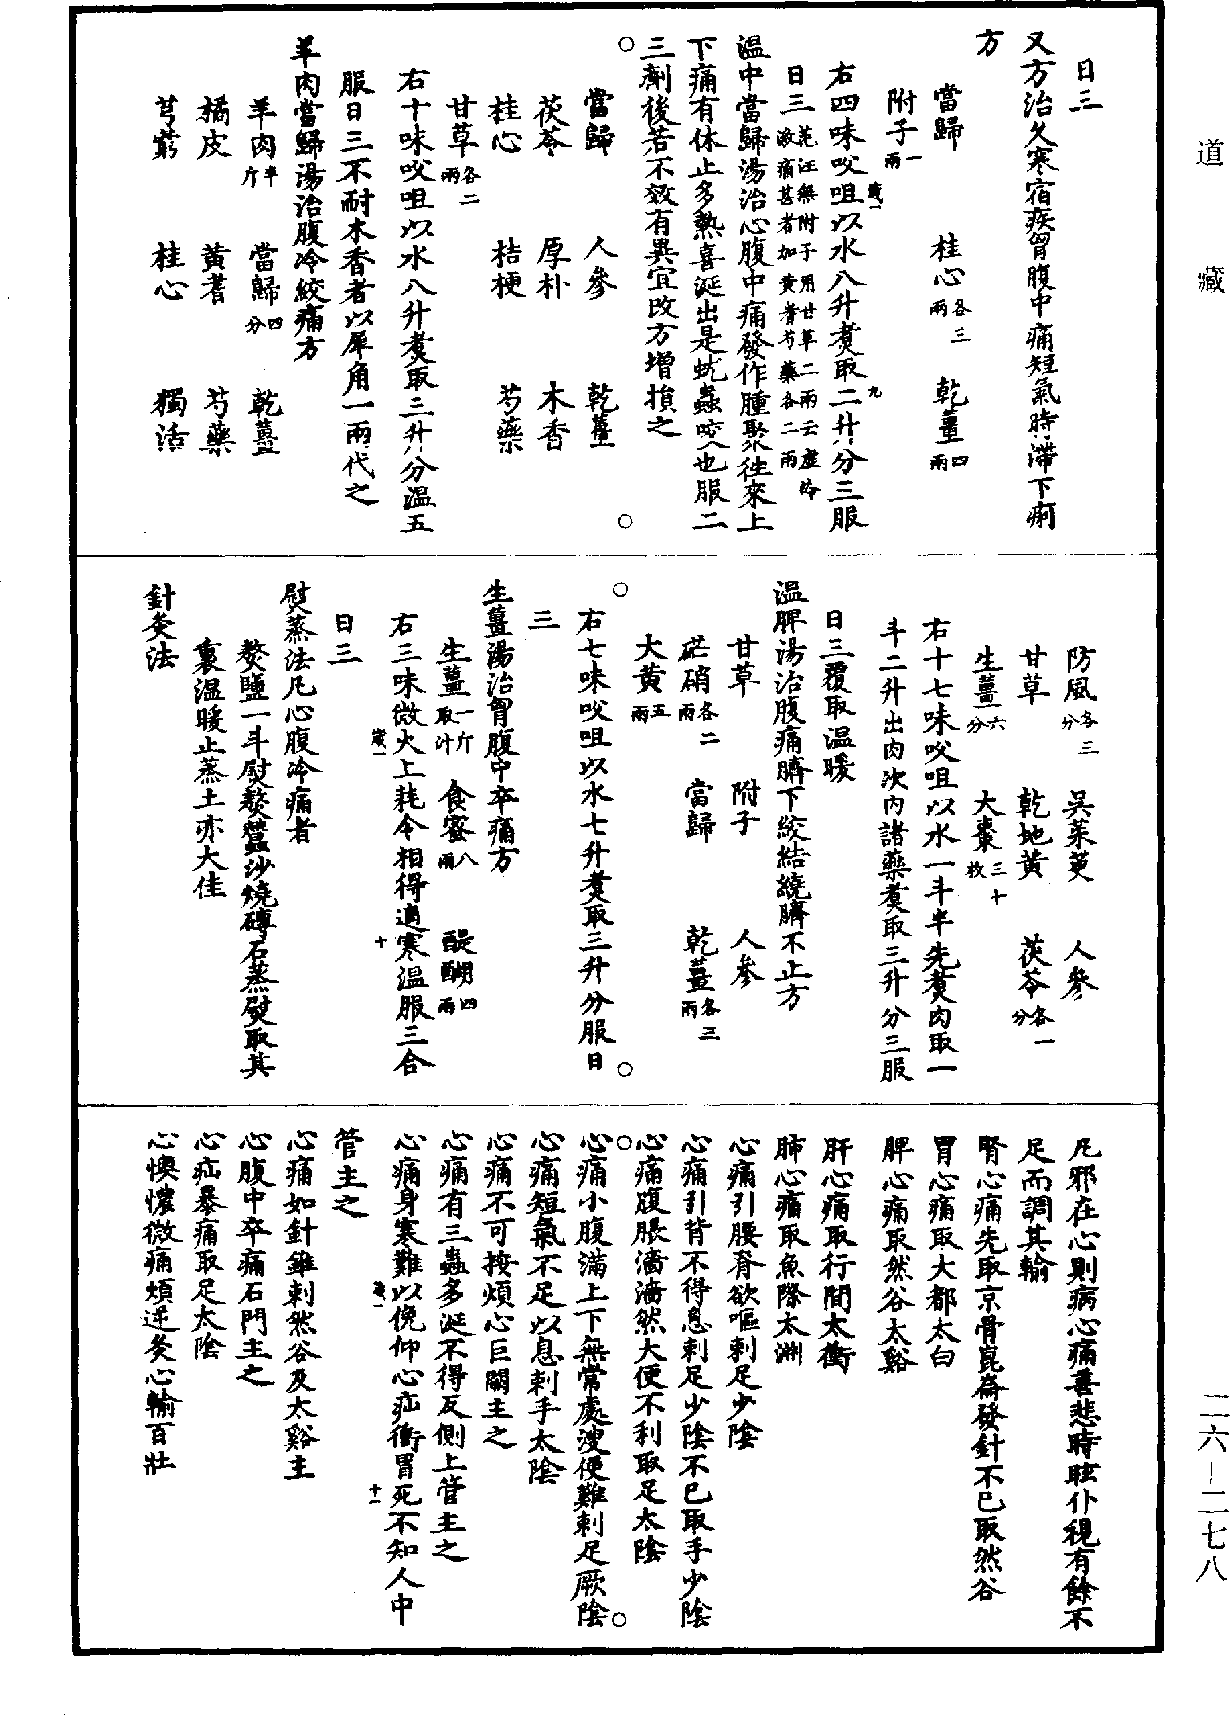 道藏
日三
又方治久寒宿疾胷腹中痛短氣時滯下痢
方
當歸　桂心各三兩　乾薑四兩
附子一兩
右四味㕮咀以水八升煑取二升分三服
日三范汪無附子用甘草二兩云虛冷激痛甚者加黄耆芍藥各二兩
溫中當歸湯治心腹中痛發作腫聚往來上
下痛有休止多熱喜涎出是蚘蟲咬也服二
三劑後若不效有異宜改方增損之
當歸　人參　乾薑
茯苓　厚朴　木香
桂心　桔梗　芍藥
甘草各二兩
右十味㕮咀以水八升煑取三升分溫五
服日三不耐木香者以犀角一兩代之
羊肉當歸湯治腹冷絞痛方
羊肉半斤　當歸四分　乾薑
橘皮　黃耆　芍藥
芎藭　桂心　獨活
歲一
九
防風各三分　吳茱萸　人參
甘草　乾地黃　茯苓各一分
生薑六分　大棗三十枚
右十七味㕮咀以水一斗半先煑肉取一
斗二升出肉次內諸藥煑取三升分三服
日三覆取溫暖
溫脾湯治腹痛臍下絞結繞臍不止方
甘草　附子　人參
芒硝各二兩　當歸　乾薑各三兩
大黃五兩
右七味㕮咀以水七升煑取三升分服日
三
生薑湯治胷腹中卒痛方
生薑一斤取汁　食蜜八兩　醍醐四兩
右三味微火上耗令相得適寒溫服三合
日三
歲一
十
熨蒸法凡心腹冷痛者
熬鹽一斗熨熬蠶沙燒磚石蒸熨取其
裏溫暖止蒸土亦大佳
針灸法
凡邪在心則病心痛善悲時眩仆視有餘不
足而調其輸
腎心痛先取京骨崑崙發針不已取然谷
胃心痛取大都太白
脾心痛取然谷太谿
肝心痛取行間太衝
肺心痛取魚際太淵
心痛引腰脊欲嘔刺足少陰
心痛引背不得息刺足少陰不已取手少陰
心痛腹脹濇濇然大便不利取足太陰
心痛小腹滿上下無常處溲便難刺足厥陰
心痛短氣不足以息刺手太陰
心痛不可按煩心巨闕主之
心痛有三蟲多涎不得反側上管主之
心痛身寒難以俛仰心疝衝冒死不知人中
管主之
歲一
十一
心痛如針錐刺然谷及太谿主
心腹中卒痛石門主之
心疝暴痛取足太陰
心懊憹微痛煩逆灸心輸百壯
二六－二七八